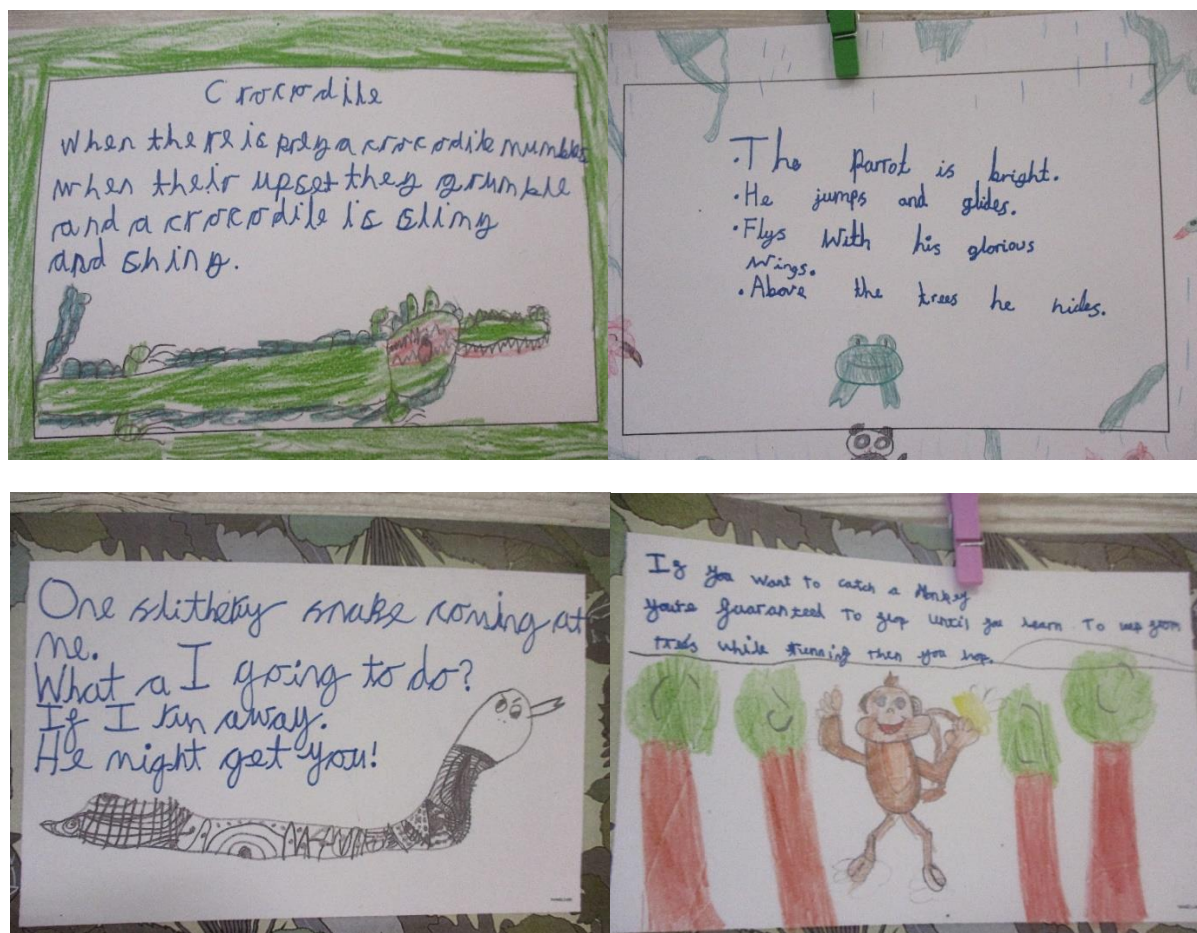 Crocodile
When there is prey a crocodile mumbles
when their upset they grumble
and a crocodile is slimy
and shiny.
.The parrot is bright.
.He jumps and glides.
.Flys with his glorious
wings.
.Above the trees he hides.
One slithery snake coming at
me.
What a I going to do?
If I run away.
He might get you!
If you want To catch a Monkey
you're guaranteed To flop until you learn To leap from
trees while running then you hop.